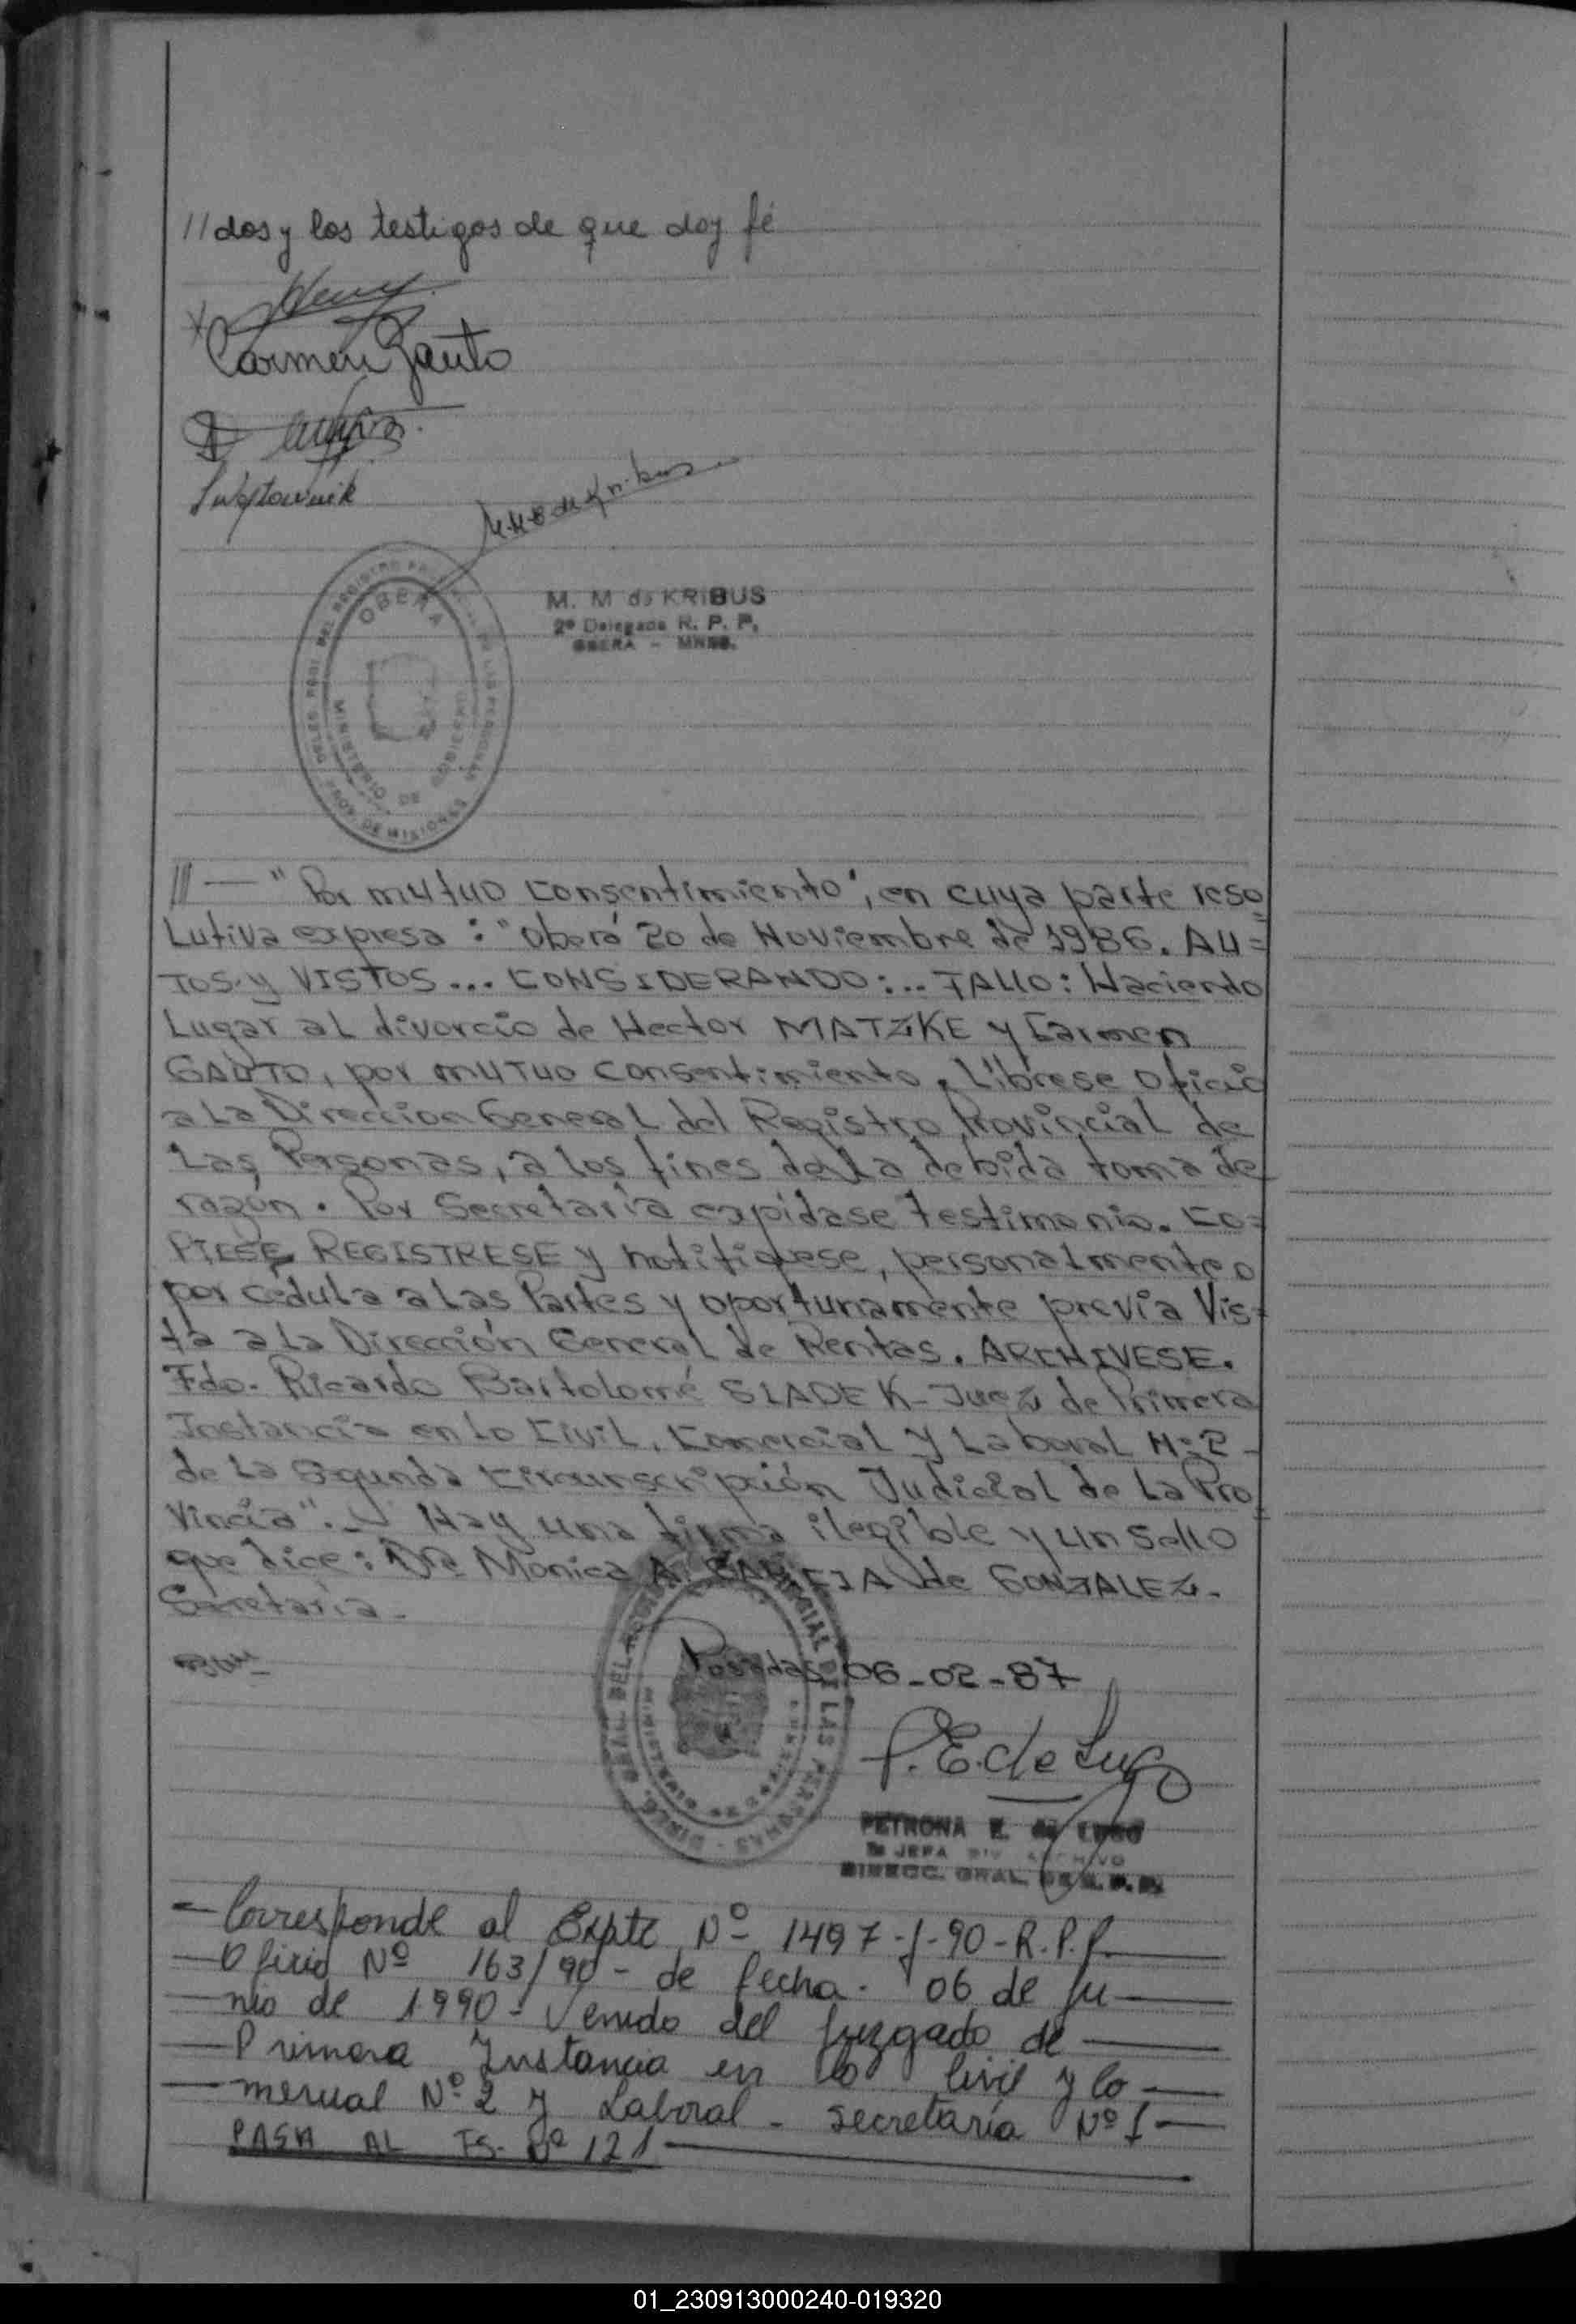 //dos y los testigos de que doy fé
Carmen Gauto
M. M de KRIBUS
2º Delegada R. P. P.
OBERA - MNES.
OBERA
MINISTERIO DE GOBIERNO
PROV. DE MISIONES
///— "Por mutuo consentimiento", en cuya parte reso=
lutiva expresa: "Oberá 20 de Noviembre de 1986. AU=
TOS y VISTOS... CONSIDERANDO:... FALLO: Haciendo
Lugar al divorcio de Hector MATZKE y Carmen
GAUTO, por mutuo consentimiento. Líbrese oficio
a la Direccion General del Registro Provincial de
las Personas, a los fines de la debida toma de
razón. Por Secretaría expídase testimonio. CO=
PIESE REGISTRESE y notifiquese, personalmente o
por cédula a las Partes y oportunamente previa Vis=
ta a la Dirección General de Rentas. ARCHIVESE.
Fdo. Ricardo Bartolomé SLADEK - Juez de Primera
Instancia en lo Civil, Comercial y Laboral Nº 2 -
de la Segunda Circunscripción Judicial de la Pro=
vincia".- Hay una firma ilegible y un sello
que dice: Dra Monica A. de GONZALEZ.
Secretaria.-
Posadas 06-02-87
P. E. de Lugo
PETRONA E. de LUGO
JEFA DIV ARCHIVO
DIRECC. GRAL. DE R. P. P.
- Corresponde al Expte Nº 1497-J-90-R.P.P.
- Oficio Nº 163/90 - de fecha. 06 de Ju
- nio de 1990 - Venido del Juzgado de
- Primera Instancia en lo Civil y Co
- mercial Nº 2 y Laboral - secretaría Nº 1
PASA AL FS. Nº 121
01_230913000240-019320